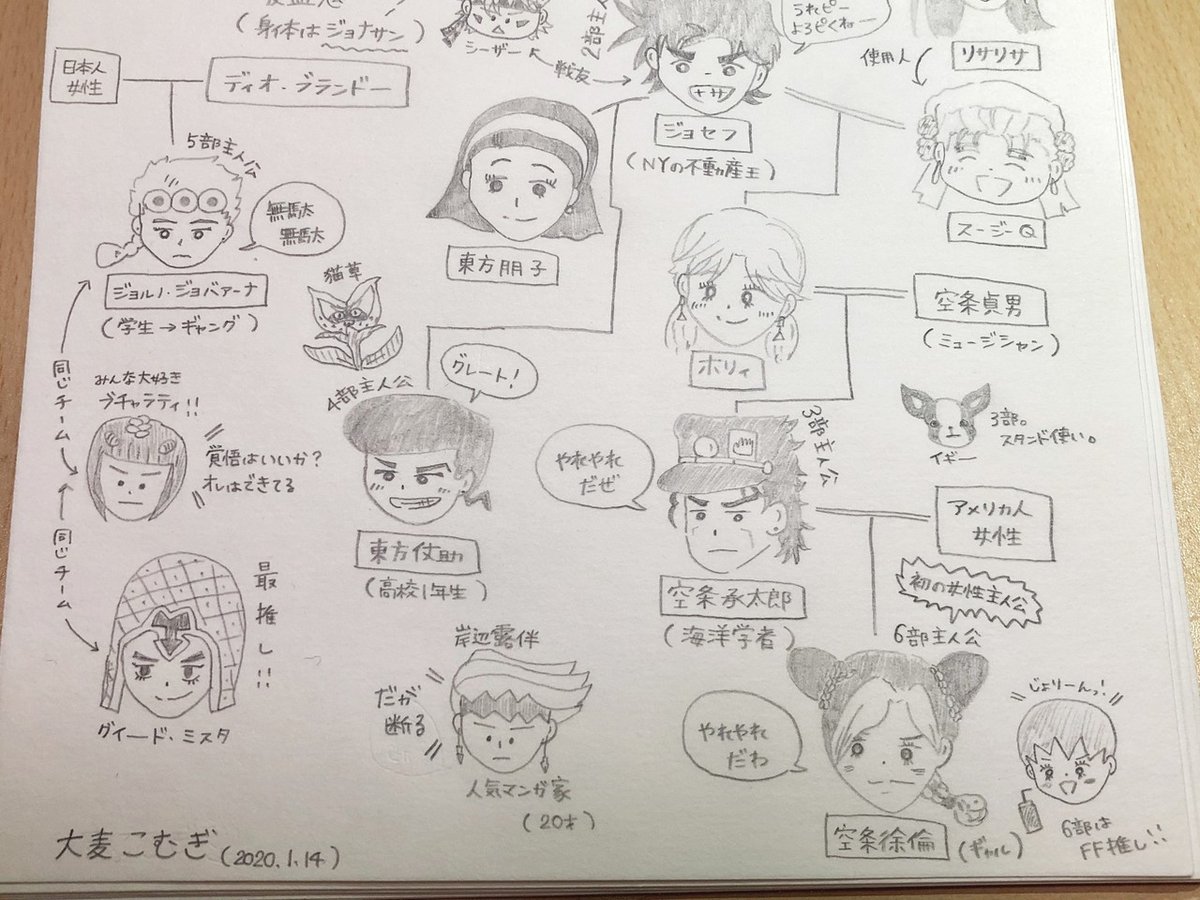 (身体はジョナサン)
日本人
女性
ディオ・ブランドー
シーザー
戦友
2部主人公
うれピー
よろピくねー
ジョセフ
(NYの不動産王)
使用人
リサリサ
スージーQ
5部主人公
無駄
無駄
ジョルノ・ジョバァーナ
(学生→ギャング)
東方朋子
猫草
ホリィ
空条貞男
(ミュージシャン)
同じチーム
みんな大好き
ブチャラティ!!
覚悟はいいか?
オレはできてる
4部主人公
グレート!
東方仗助
(高校1年生)
やれやれ
だぜ
3部主人公
空条承太郎
(海洋学者)
3部。
スタンド使い。
イギー
アメリカ人
女性
初の女性主人公
6部主人公
同じチーム
最推し!!
グイード・ミスタ
岸辺露伴
だが
断る
人気マンガ家
(20才)
やれやれ
だわ
空条徐倫
(ギャル)
じょりーんっ!
6部は
FF推し!!
大麦こむぎ(2020.1.14)